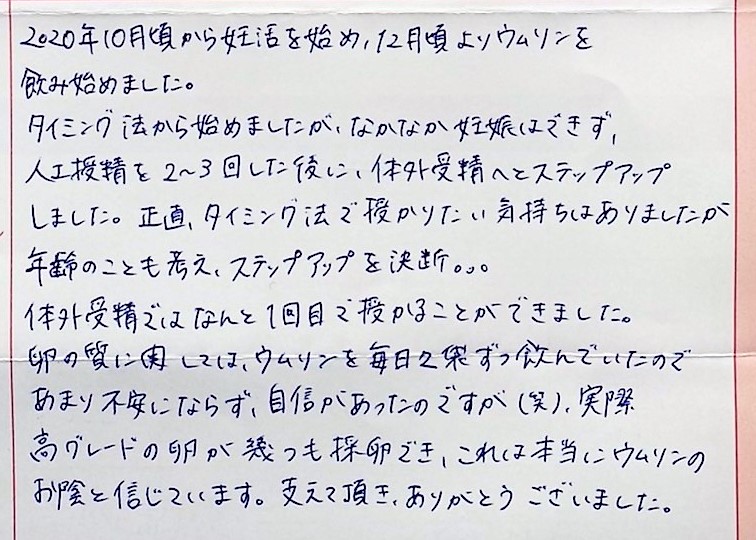 2020年10月頃から妊活を始め、12月頃よりウムリンを
飲み始めました。
タイミング法から始めましたが、なかなか妊娠はできず、
人工授精を2～3回した後に、体外受精へとステップアップ
しました。正直、タイミング法で授かりたい気持ちはありましたが
年齢のことも考え、ステップアップを決断。。。
体外受精ではなんと1回目で授かることができました。
卵の質に関しては、ウムリンを毎日2袋ずつ飲んでいたので
あまり不安にならず、自信があったのですが（笑）、実際
高グレードの卵が幾つも採卵でき、これは本当にウムリンの
お陰と信じています。支えて頂き、ありがとうございました。